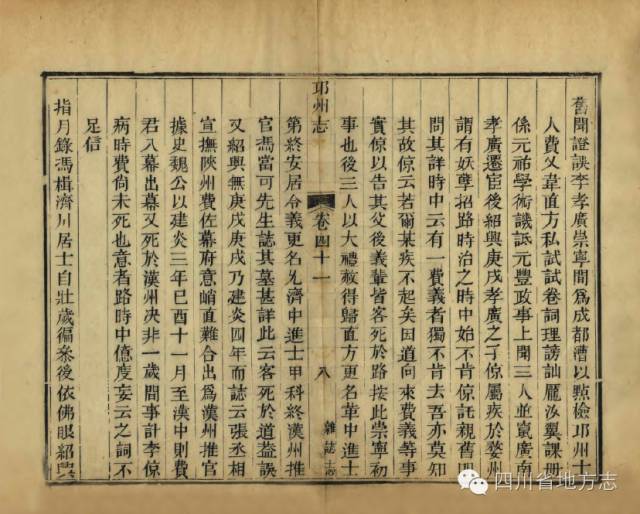 舊聞證誤李孝廣崇寧間爲成都漕以點檢邛州士
人費乂韋直方私試試卷詞理謗訕龎汝翼課冊
係元祐學術譏詆元豐政事上聞三人並竄廣南
孝廣遷官後紹興庚戌孝廣之子倞屬疾於婺州
謂有妖孽招路時治之時中始不肯倞託親舊四
問其詳時中云有一費義者獨不肯去吾亦莫知
其故倞云若爾某疾不起矣因道向來費義等事
實倞以告其父後義輩皆客死於路按此崇寧初
事也後三人以大禮赦得歸直方更名革中進士
邛州志 卷四十一 八 雜誌志
第終安居令義更名允濟中進士甲科終漢州推
官馮當可先生誌其墓甚詳此云客死於道葢誤
又紹興無庚戌庚戌乃建炎四年而誌云張丞相
宣撫陝州費佐幕府意峭直難合出爲漢州推官
據史魏公以建炎三年己酉十一月至漢中則費
君入幕出幕又死於漢州决非一歲間事計李倞
病時費尚未死也意者路時中億度妄云之詞不
足信
指月錄馮檝濟川居士自壯歲徧參後依佛眼紹興
四川省地方志